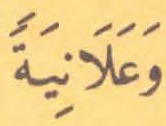 وَعَلَانِيَةً